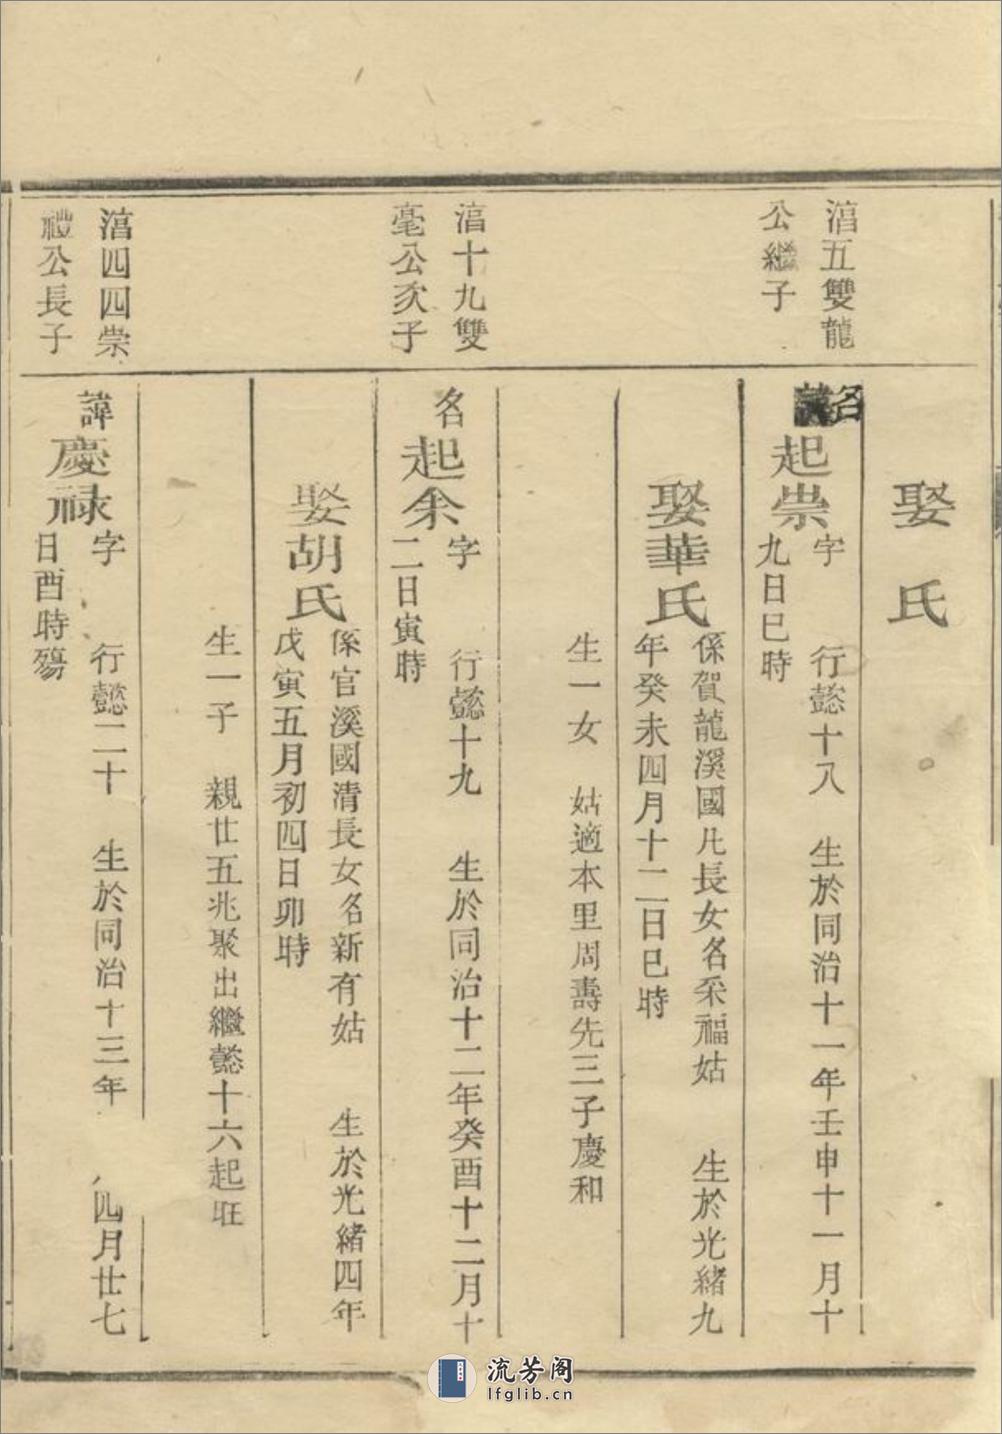 娶　氏
湻五雙龍
公繼子
名
起崇
字　行懿十八　生於同治十一年壬申十一月十
九日巳時
娶華氏
係賀龍溪國凡長女名采福姑　生於光緒九
年癸未四月十二日巳時
生一女　姑適本里周壽先三子慶和
湻十九雙
毫公次子
名
起余
字　行懿十九　生於同治十二年癸酉十二月十
二日寅時
娶胡氏
係官溪國清長女名新有姑　生於光緒四年
戊寅五月初四日卯時
生一子　親廿五兆聚出繼懿十六起旺
湻四四崇
禮公長子
諱
慶祿
字　行懿二十　生於同治十三年　四月廿七
日酉時殤
流芳阁
lfglib.cn